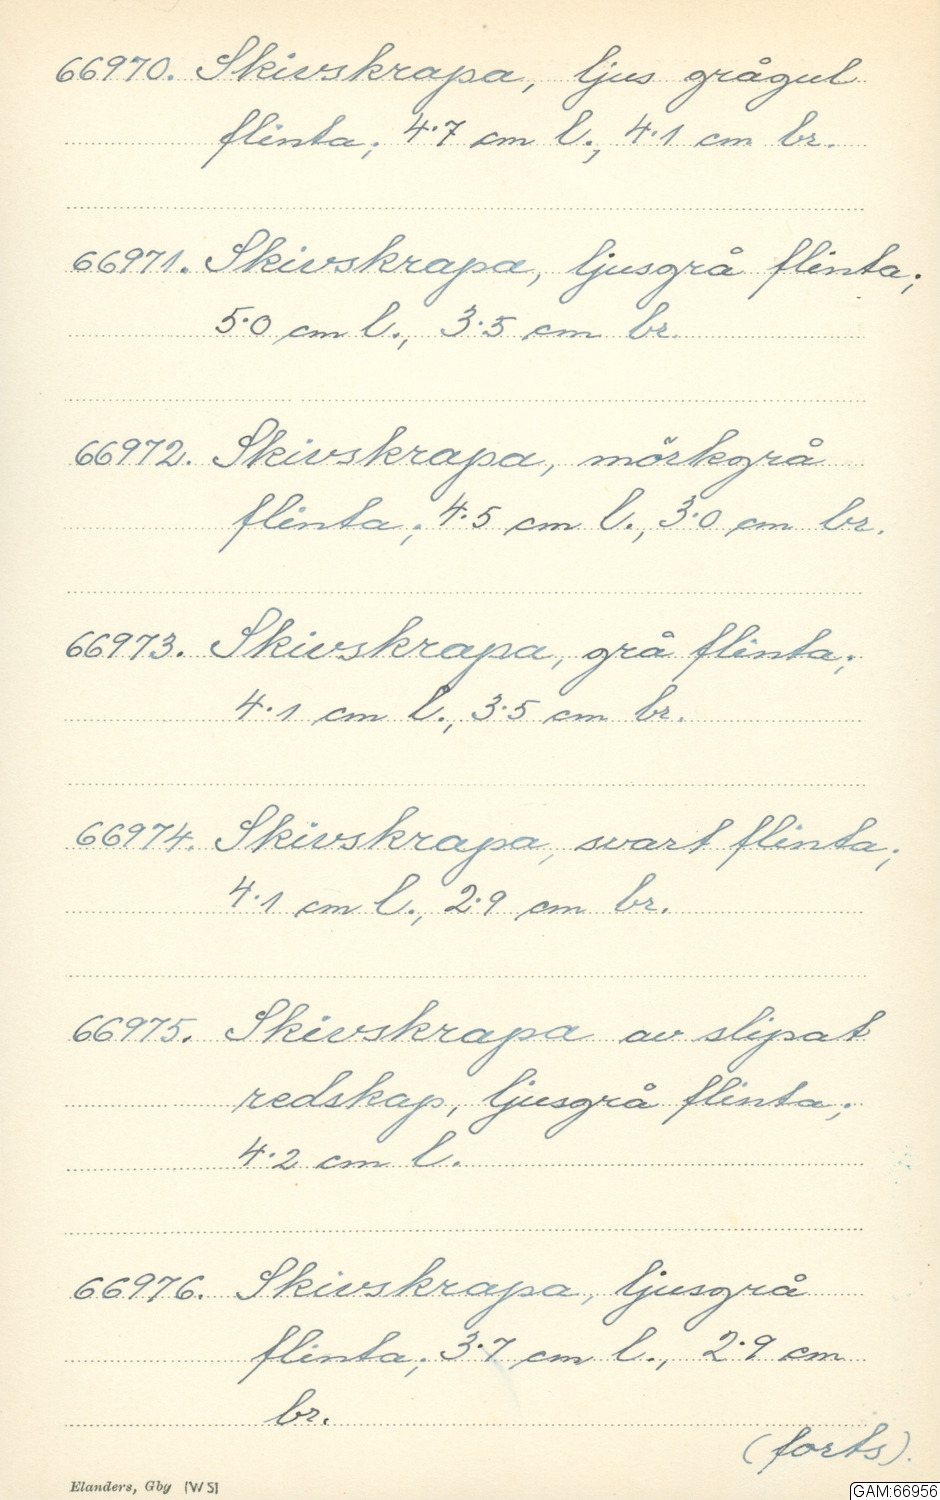 66970. Skivskrapa, ljus grågul
flinta; 4·7 cm l., 4·1 cm br.
66971. Skivskrapa, ljusgrå flinta;
5·0 cm l., 3·5 cm br.
66972. Skivskrapa, mörkgrå
flinta; 4·5 cm l., 3·0 cm br.
66973. Skivskrapa, grå flinta;
4·1 cm l., 3·5 cm br.
66974. Skivskrapa, svart flinta;
4·1 cm l., 2·9 cm br.
66975. Skivskrapa av slipat
redskap, ljusgrå flinta;
4·2 cm l.
66976. Skivskrapa, ljusgrå
flinta; 3·7 cm l., 2·9 cm
br.
(forts).
Elanders, Gby [WS]
GAM:66956